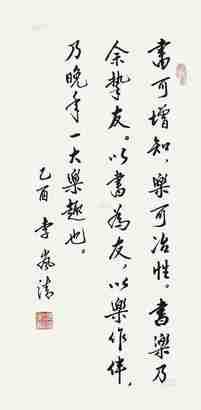 書可增知，樂可冶性。書樂乃
余摯友。以書為友，以樂作伴，
乃晚年一大樂趣也。
乙酉 李嵐清